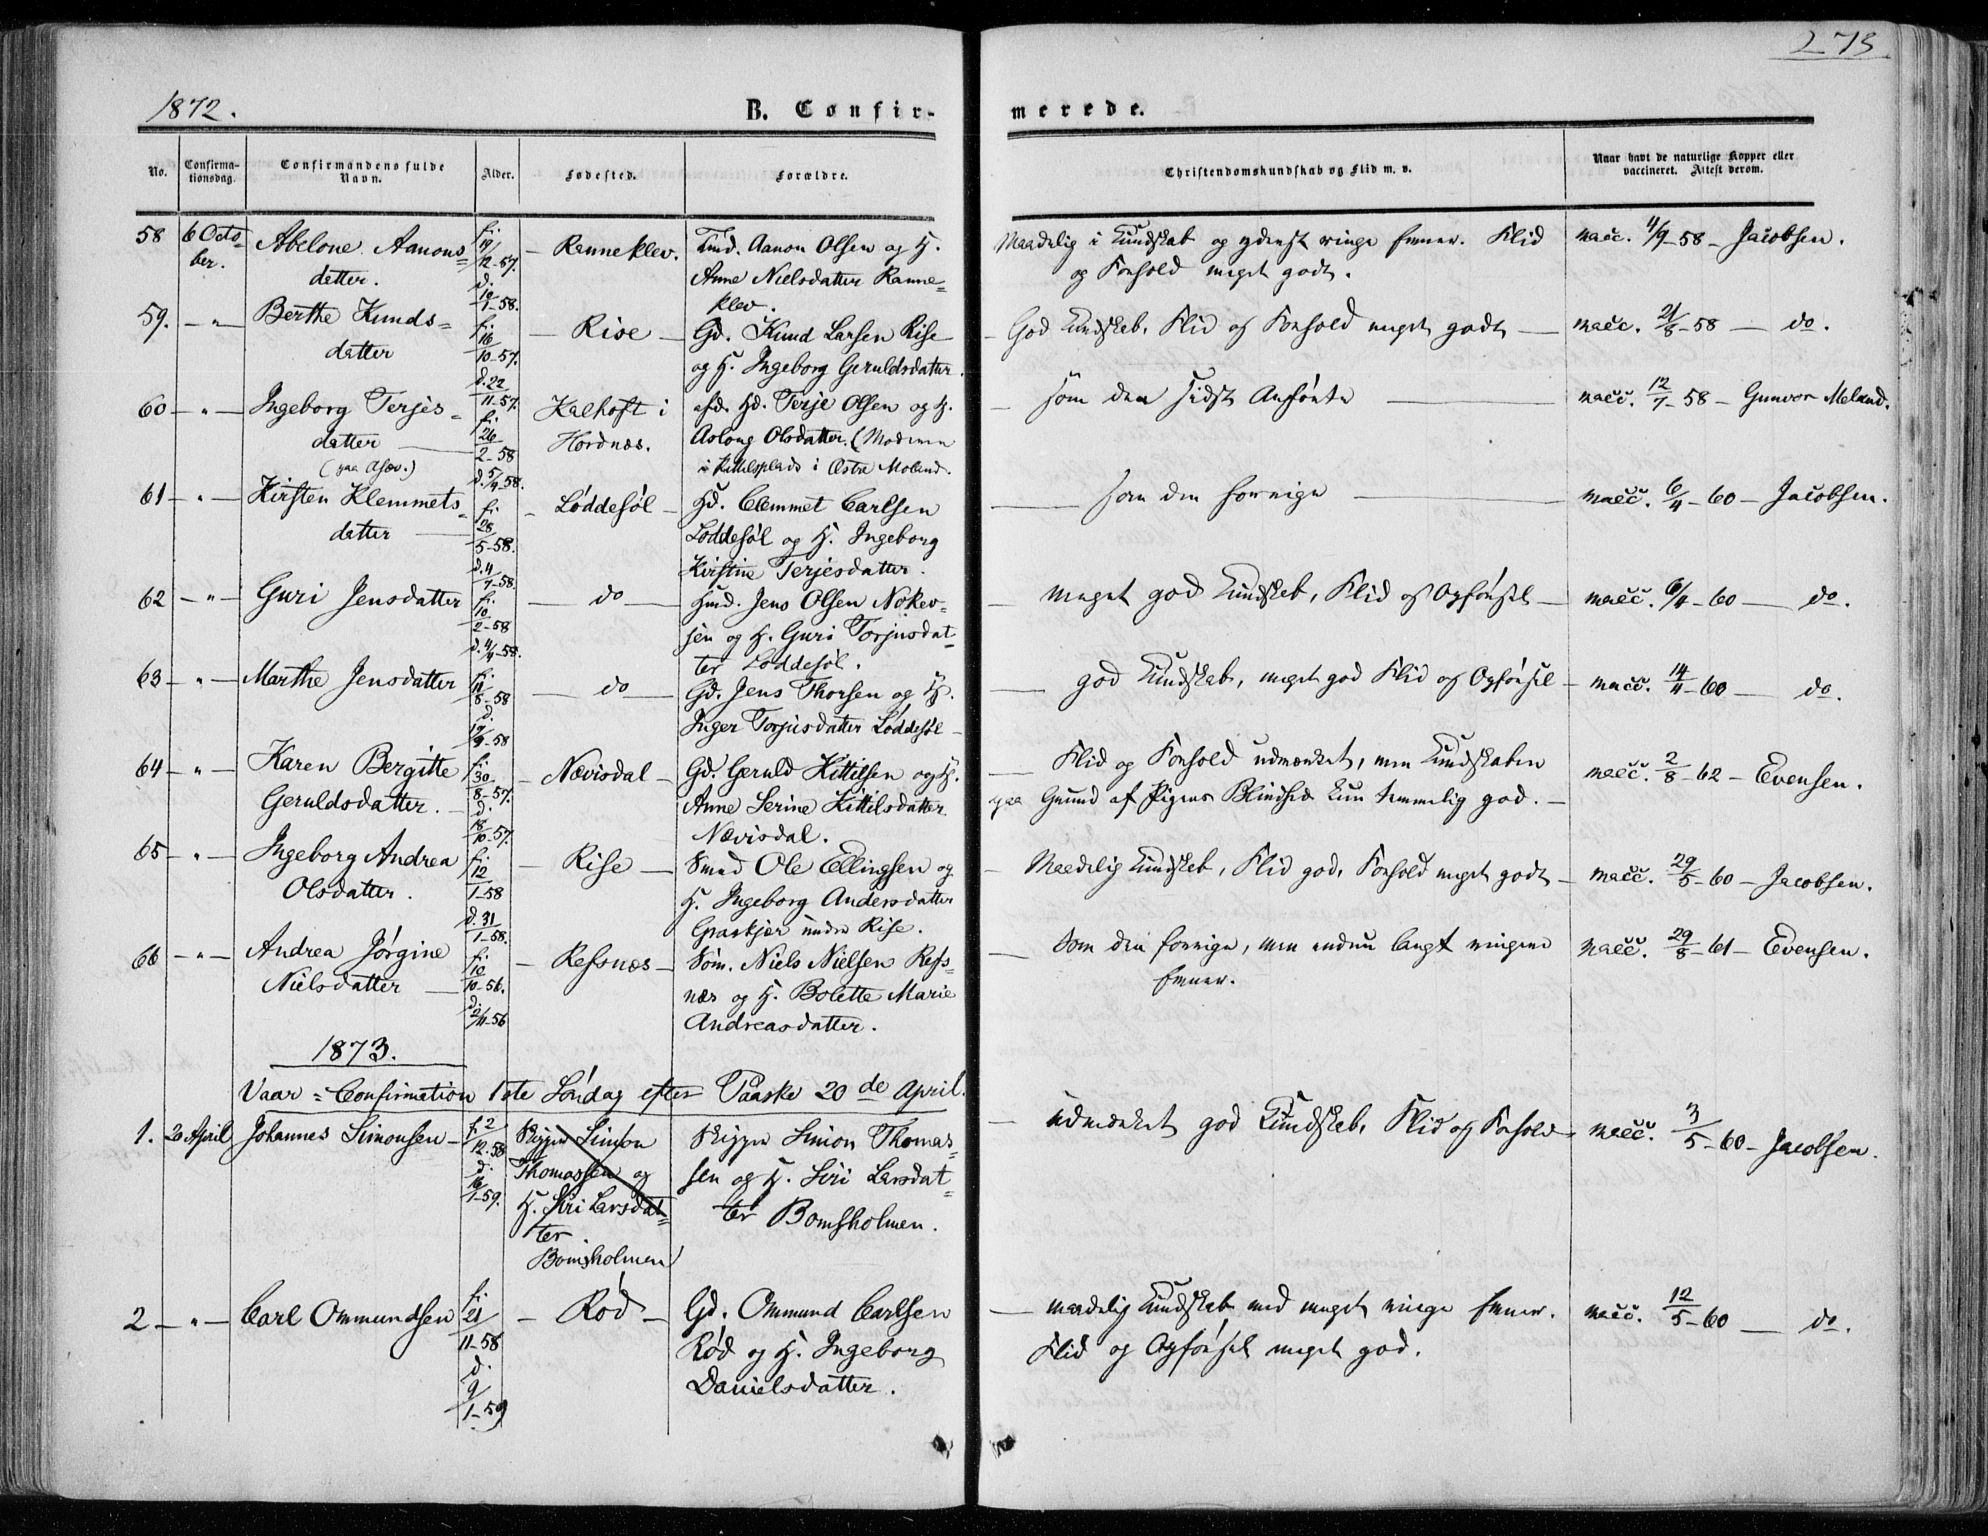 273
1872.
B. Confir-
merede.
No.
Confirma-
tionsdag.
Confirmandens fulde
Navn.
Alder.
Fødested.
Forældre.
Christendomskundskab og Flid m. v.
Naar havt de naturlige Kopper eller
vaccineret. Attest derom.
58 6 Octo- Abelone Aanons- f. 19/12-57. – Ranneklev. Aanon Olsen og H. Maadelig i Kundskab og yderst ringe Evner. Flid vacc. 11/9-58 – Jacobsen.
ber. datter. d. 10/1-58. Anne Nielsdatter Ranne- og Forhold meget godt.
klev.
59. – " – Berthe Knuds- f. 16/10-57. – Rise – Gd. Knud Larsen Rise – God Kundskab, Flid og Forhold meget godt – vacc. 21/8-58 – do.
datter d. 22/11-57. og H. Ingeborg Geruldsdatter.
60 – " – Ingeborg Terjes- f. 26/2-58 Kalhoft i afd. Hd. Terje Olsen og H. – som den sidst Anførte – vacc. 12/7-58 – Gunvor Meland.
datter – d. 5/4-58. Hordnæs. Aslaug Olsdatter. (Moderen
(paa Asev.) i Kittelsplads i Østre Moland.
61 – " – Kirsten Klemmets- f. 28/5-58. – Løddesøl – Hd. Clemmet Carlsen – som den forrige – vacc. 6/4-60 – Jacobsen.
datter – d. 4/7-58. Løddesøl og H. Ingeborg
Kirstine Terjesdatter.
62 – " – Guri Jensdatter f. 10/2-58 – do – Hmd. Jens Olsen – meget god Kundskab, Flid og Opførsel – vacc. 6/4-60 – do.
d. 4/4-58. og H. Guri Torjusdat-
ter Løddesøl.
63 – " – Marthe Jensdatter f. 11/8-58 – do – Gd. Jens Thorsen og H. – god Kundskab, meget god Flid og Opførsel – vacc. 14/4-60 – do.
d. 17/9-58 Inger Torjusdatter Løddesøl –
64 – " – Karen Bergitte f. 30/8-57. – Nævisdal – Gd. Geruld Kittilsen og H. – Flid og Forhold udmærket, men Kundskaben vacc. 2/8-62 – Evensen.
Geruldsdatter. – d. 18/10-57. Anne Serine Kittilsdatter paa Grund af Pigens Blindhed kun temmelig god. –
Nævisdal.
65 – " – Ingeborg Andrea f. 12/1-58 – Rise – Smed Ole Ellingsen og – Maadelig Kundskab, Flid god, Forhold meget godt – vacc. 29/5-60 – Jacobsen.
Olsdatter. d. 31/1-58. H. Ingeborg Andersdatter
Graskjær under Rise.
66 – " – Andrea Jørgine f. 10/10-56. – Refsnæs – Søm. Niels Nielsen Refs- – Som den forrige, men endnu langt ringere vacc. 29/8-61 – Evensen.
Nielsdatter – d. 2/11-56 næs og H. Bolette Marie Evner.
Andreasdatter.
1873.
Vaar-Confirmation 1ste Søndag efter Paaske 20de April.
1. 20 April Johannes Simonsen – f. 2/12-58 Skipper Simon Skipper Simon Thomas- – udmærket god Kundskab, Flid og Forhold – vacc. 3/5-60 – Jacobsen.
d. 16/1-59. Thomassen og sen og H. Siri Larsdat-
H. Siri Larsdat- ter Bomsholmen.
ter
Bomsholmen
2 – " – Carl Ommundsen f. 21/11-58 – Rød – Gd. Ommund Carlsen – maadelig Kundskab med meget ringe Evner. vacc. 12/5-60 – do.
d. 9/1-59 Rød og H. Ingeborg Flid og Opførsel meget god.
Danielsdatter.